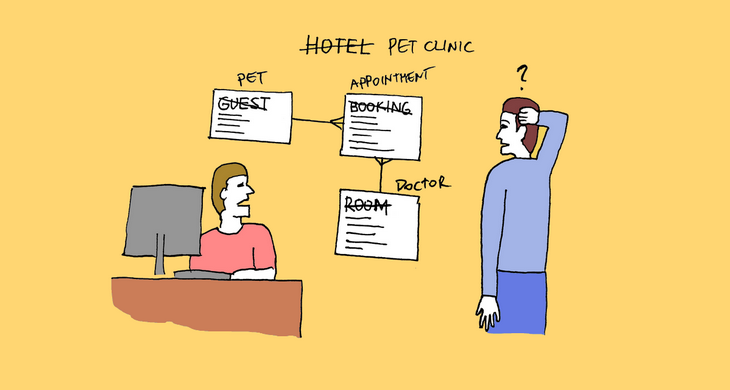 HOTEL PET CLINIC
PET
APPOINTMENT
GUEST
BOOKING
?
DOCTOR
ROOM